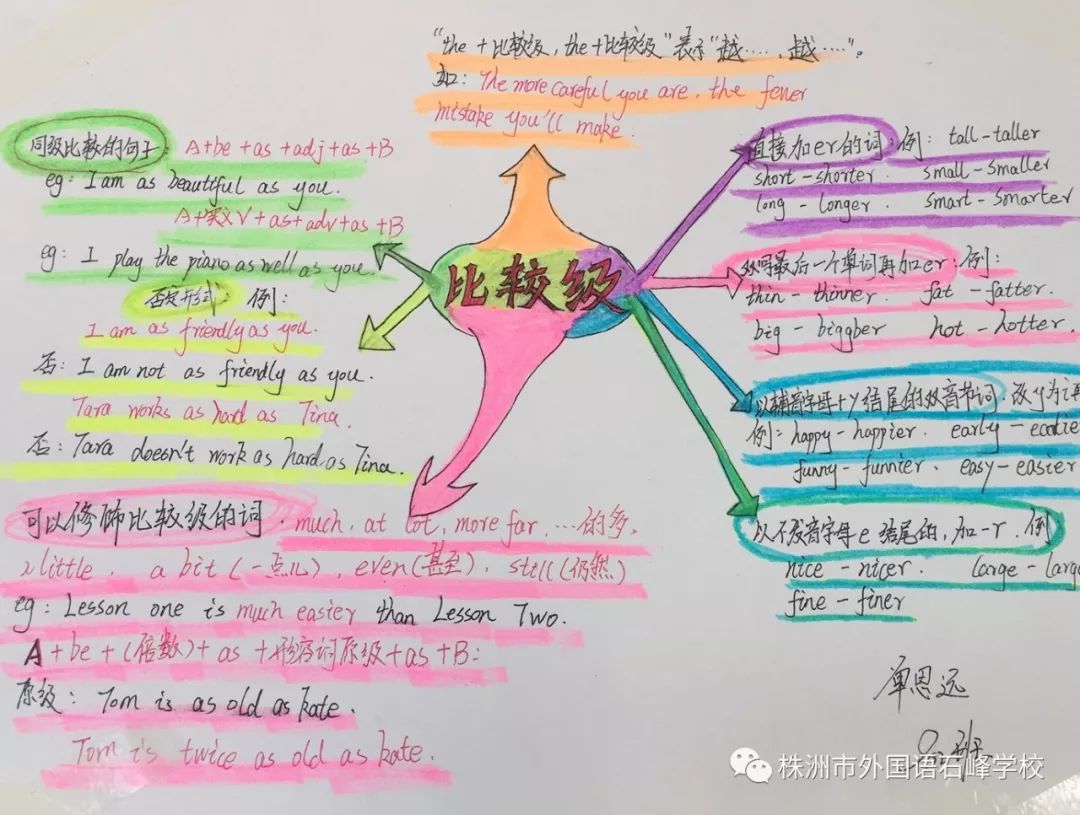 "the+比较级,the+比较级"表示"越……,越……"。
如: The more careful you are, the fewer
mistake you'll make.
同级比较的句子: A+be+as+adj+as+B
eg: I am as beautiful as you.
A+实义V+as+adv+as+B
eg: I play the piano as well as you.
否定形式: 例:
I am as friendly as you.
否: I am not as friendly as you.
Tara works as hard as Tina.
否: Tara doesn't work as hard as Tina.
比较级
直接加er的词: 例: tall-taller
short-shorter. small-smaller
long-longer. smart-smarter
双写最后一个单词再加er: 例:
thin-thinner. fat-fatter.
big-biggber hot-hotter.
以辅音字母+y结尾的双音节词.改y为i再
例: happy-happier. early-
funny-funnier. easy-easier
以不发音字母e结尾的,加-r.例
nice-nicer. large-larg
fine-finer
可以修饰比较级的词. much, at lot, more far, …的多,
little, a bit(一点儿), even(甚至), still(仍然)
eg: Lesson one is much easier than Lesson Two.
A+be+(倍数)+as+形容词原级+as+B:
原级: Tom is as old as kate.
Tom is twice as old as kate.
单恩远
班
株洲市外国语石峰学校